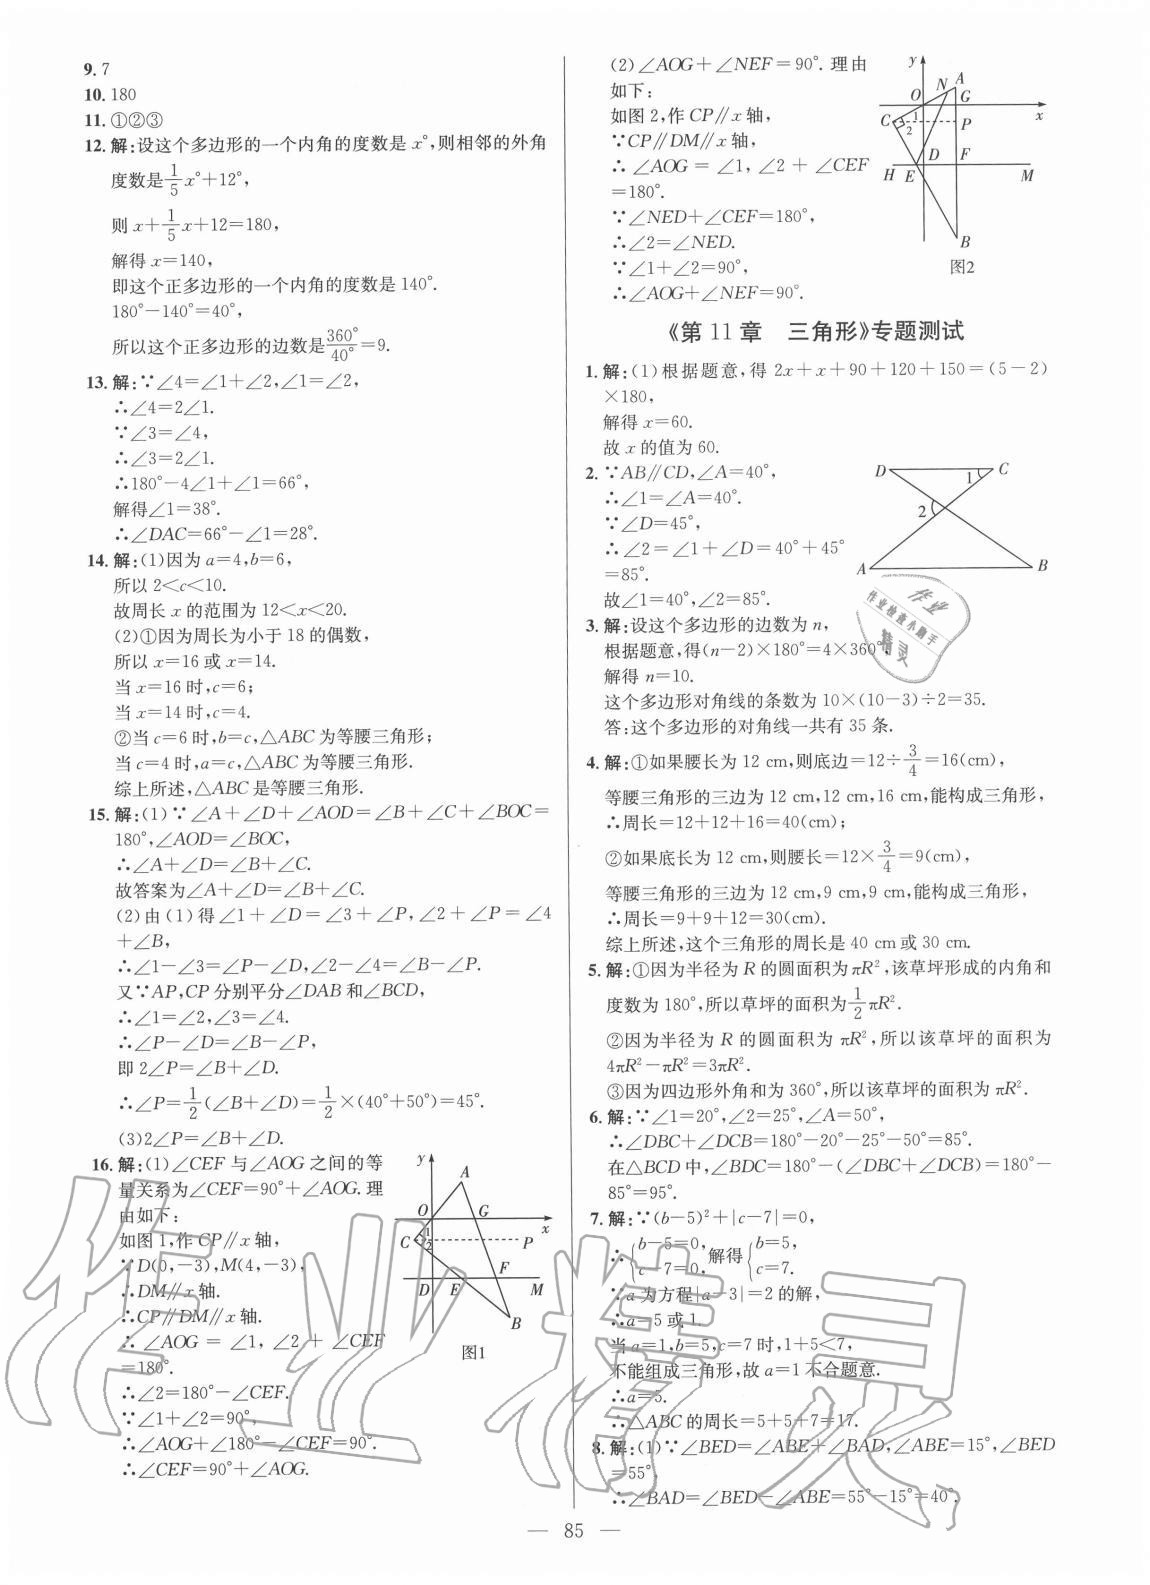 9. 7
10. 180
11. ①②③
12. 解:设这个多边形的一个内角的度数是 x°,则相邻的外角
度数是1/5x°+12°,
则 x+1/5x+12=180,
解得 x=140,
即这个正多边形的一个内角的度数是 140°.
180°-140°=40°,
所以这个正多边形的边数是360°/40°=9.
13. 解:∵∠4=∠1+∠2,∠1=∠2,
∴∠4=2∠1.
∵∠3=∠4,
∴∠3=2∠1.
∴180°-4∠1+∠1=66°,
解得∠1=38°.
∴∠DAC=66°-∠1=28°.
14. 解:(1)因为 a=4,b=6,
所以 2<c<10.
故周长 x 的范围为 12<x<20.
(2)①因为周长为小于 18 的偶数,
所以 x=16 或 x=14.
当 x=16 时,c=6;
当 x=14 时,c=4.
②当 c=6 时,b=c,△ABC 为等腰三角形;
当 c=4 时,a=c,△ABC 为等腰三角形.
综上所述,△ABC 是等腰三角形.
15. 解:(1)∵∠A+∠D+∠AOD=∠B+∠C+∠BOC=
180°,∠AOD=∠BOC,
∴∠A+∠D=∠B+∠C.
故答案为∠A+∠D=∠B+∠C.
(2)由(1)得∠1+∠D=∠3+∠P,∠2+∠P=∠4
+∠B,
∴∠1-∠3=∠P-∠D,∠2-∠4=∠B-∠P.
又∵AP,CP 分别平分∠DAB 和∠BCD,
∴∠1=∠2,∠3=∠4.
∴∠P-∠D=∠B-∠P,
即 2∠P=∠B+∠D.
∴∠P=1/2(∠B+∠D)=1/2×(40°+50°)=45°.
(3)2∠P=∠B+∠D.
16. 解:(1)∠CEF 与∠AOG 之间的等
量关系为∠CEF=90°+∠AOG.理
由如下:
如图 1,作 CP∥x 轴,
∵D(0,-3),M(4,-3),
∴DM∥x 轴.
∴CP∥DM∥x 轴.
∴∠AOG=∠1,∠2+∠CEF
=180°.
∴∠2=180°-∠CEF.
∵∠1+∠2=90°,
∴∠AOG+∠180°-∠CEF=90°.
∴∠CEF=90°+∠AOG.
y
A
O
G
x
1
C
2
P
F
D
E
M
B
图1
(2)∠AOG+∠NEF=90°.理由
如下:
如图 2,作 CP∥x 轴,
∵CP∥DM∥x 轴,
∴∠AOG=∠1,∠2+∠CEF
=180°.
∵∠NED+∠CEF=180°,
∴∠2=∠NED.
∵∠1+∠2=90°,
∴∠AOG+∠NEF=90°.
y
N
A
O
G
x
C
1
2
P
D
F
H
E
M
B
图2
《第 11 章 三角形》专题测试
1. 解:(1)根据题意,得 2x+x+90+120+150=(5-2)
×180,
解得 x=60.
故 x 的值为 60.
2. ∵AB∥CD,∠A=40°,
∴∠1=∠A=40°.
∵∠D=45°,
∴∠2=∠1+∠D=40°+45°
=85°.
故∠1=40°,∠2=85°.
D
1
C
2
A
B
3. 解:设这个多边形的边数为 n,
根据题意,得(n-2)×180°=4×360°.
解得 n=10.
这个多边形对角线的条数为 10×(10-3)÷2=35.
答:这个多边形的对角线一共有 35 条.
4. 解:①如果腰长为 12 cm,则底边=12÷3/4=16(cm),
等腰三角形的三边为 12 cm,12 cm,16 cm,能构成三角形,
∴周长=12+12+16=40(cm);
②如果底长为 12 cm,则腰长=12×3/4=9(cm),
等腰三角形的三边为 12 cm,9 cm,9 cm,能构成三角形,
∴周长=9+9+12=30(cm).
综上所述,这个三角形的周长是 40 cm或 30 cm.
5. 解:①因为半径为 R 的圆面积为πR²,该草坪形成的内角和
度数为 180°,所以草坪的面积为1/2πR².
②因为半径为 R 的圆面积为 πR²,所以该草坪的面积为
4πR²-πR²=3πR².
③因为四边形外角和为 360°,所以该草坪的面积为 πR².
6. 解:∵∠1=20°,∠2=25°,∠A=50°,
∴∠DBC+∠DCB=180°-20°-25°-50°=85°.
在△BCD 中,∠BDC=180°-(∠DBC+∠DCB)=180°-
85°=95°.
7. 解:∵(b-5)²+|c-7|=0,
∴{b-5=0, c-7=0, 解得{b=5, c=7.
∵a 为方程|a-3|=2 的解,
∴a=5 或 1.
当 a=1,b=5,c=7 时,1+5<7,
不能组成三角形,故 a=1 不合题意.
∴a=5.
∴△ABC 的周长=5+5+7=17.
8. 解:(1)∵∠BED=∠ABE+∠BAD,∠ABE=15°,∠BED
=55°,
∴∠BAD=∠BED-∠ABE=55°-15°=40°.
作业
作业检查小助手
精灵
作业精灵
— 85 —